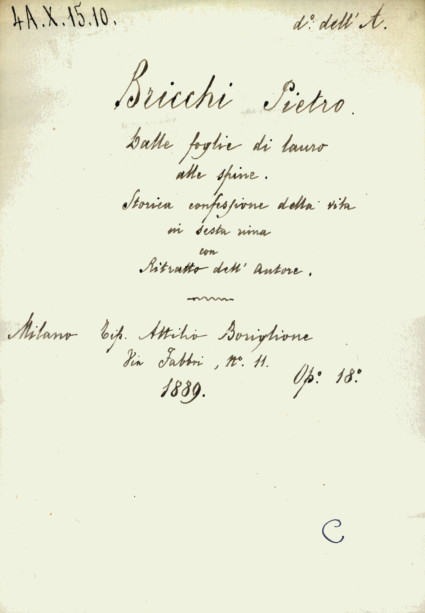 4A.X.15.10.
d.º dell' A.
Bricchi Pietro.
Dalle foglie di lauro
alle spine.
Storica confessione della vita
in sesta rima
con
Ritratto dell' autore.
Milano Tip. Attilio Boriglione
Via Fabbri, Nº. 11.
1889. Opº. 18º.
C